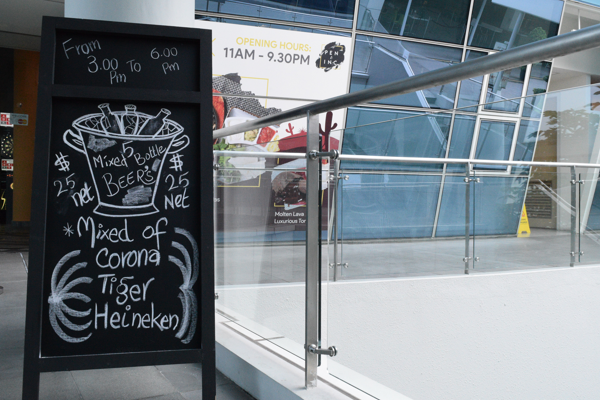 From
3.00 To 6.00
Pm Pm
Mixed 5 Bottle
BEER'S
$ $
25 25
net Net
*Mixed of
Corona
Tiger
Heineken
OPENING HOURS:
11AM - 9.30PM
OPEN
INC
Molten Lava
Luxurious Tar